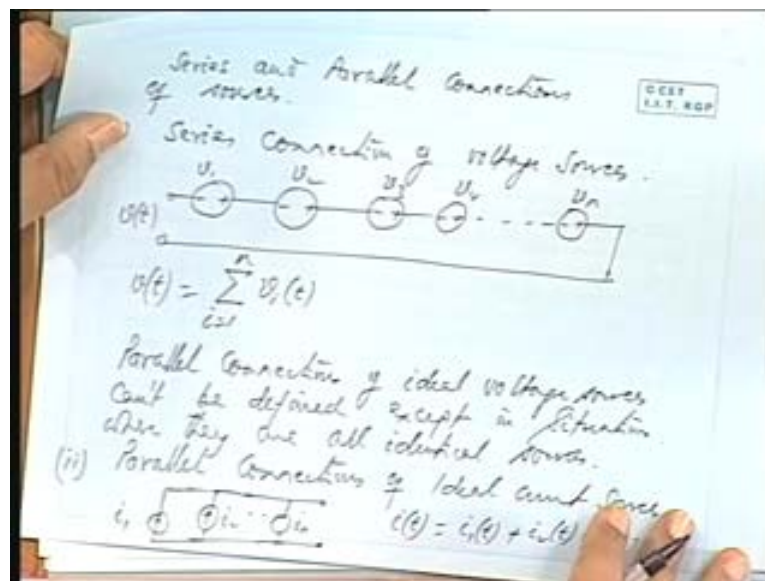 Series and Parallel Connections
of sources.
O CET
I.I.T. KGP
Series Connection of voltage Sources.
v₁ v₂ v₃ v₄ vₙ
v(t)
v(t) = Σ vᵢ(t)
n
i=1
Parallel Connection of ideal voltage sources
Can't be defined except in Situation
where they are all identical sources.
(ii) Parallel Connections of Ideal current Sources
i₁ i₂ iₙ i(t) = i₁(t) + i₂(t)